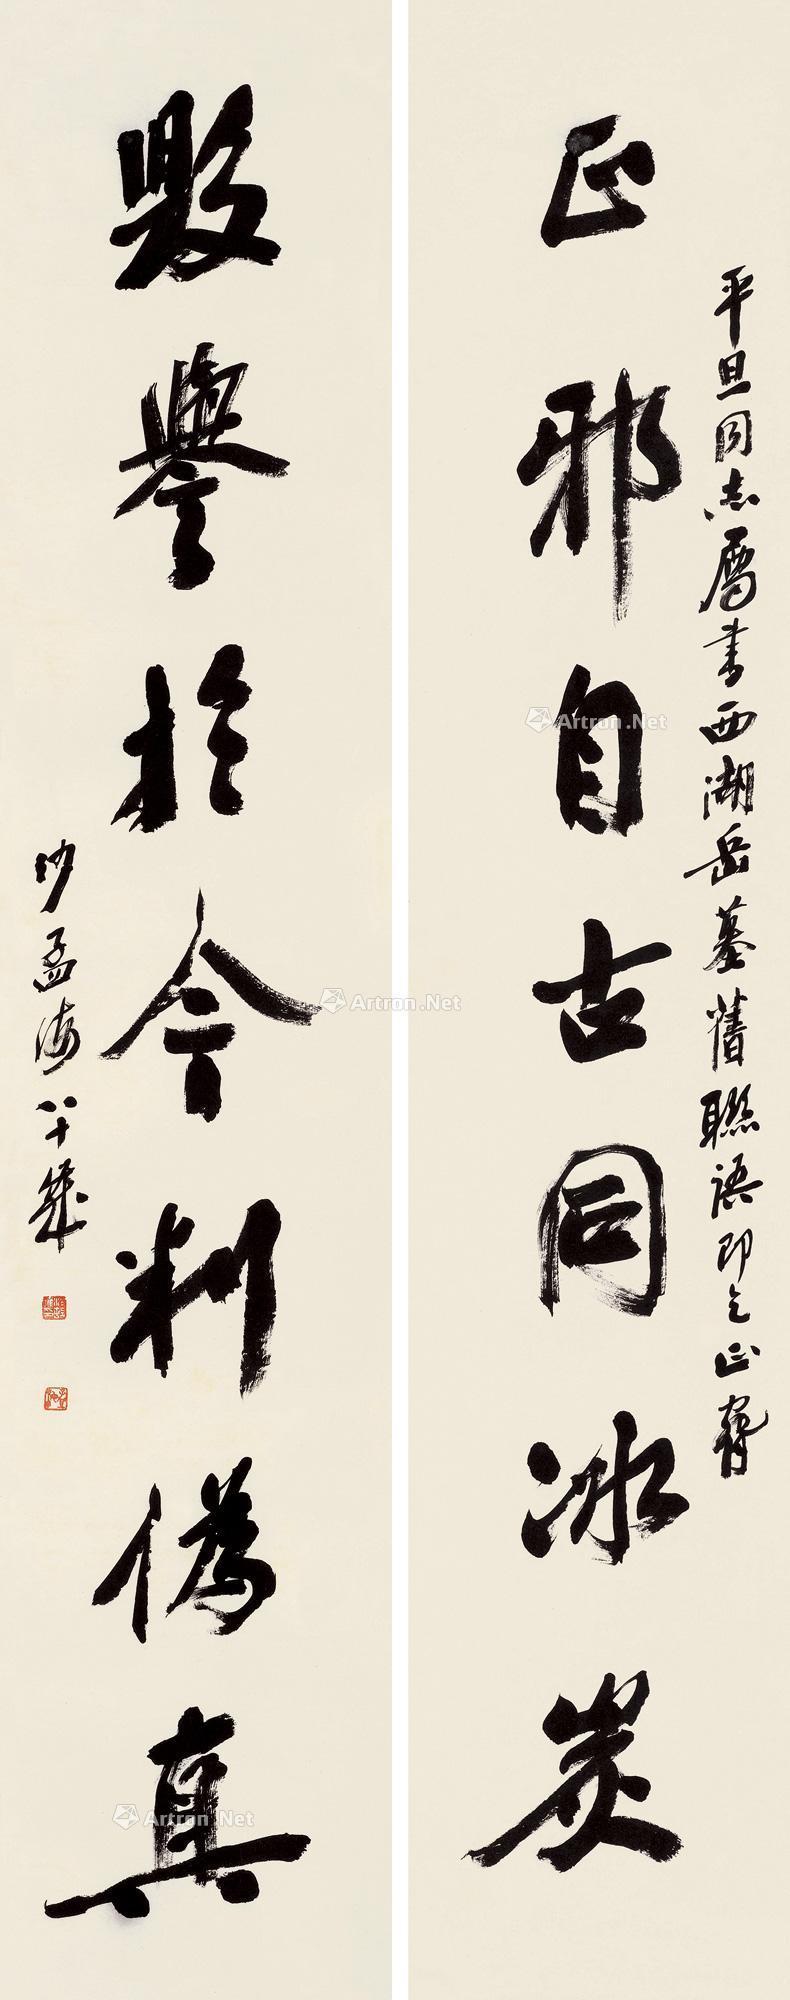 正邪自古同冰炭
平旦同志属书西湖岳墓旧聯語即乞正腕
毁譽於今判偽真
沙孟海八十歲
Artron.Net
Artron.Net
Artron.Net
Artron.Net